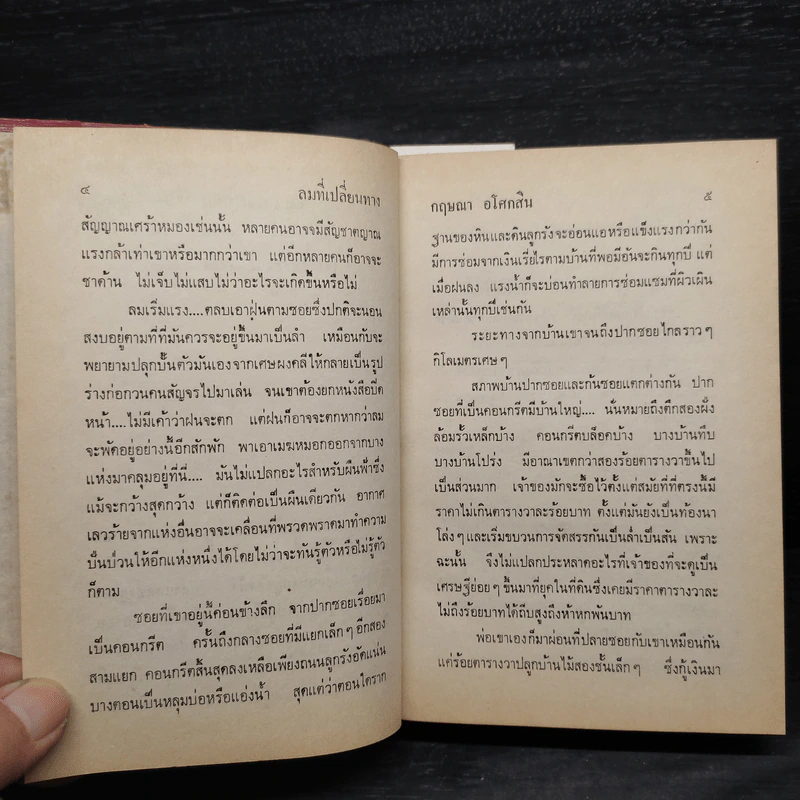 ๔
ลมที่เปลี่ยนทาง
สัญญาณเศร้าหมองเช่นนั้น หลายคนอาจจมีสัญชาตญาณ
แรงกล้าเท่าเขาหรือมากกว่าเขา แต่อีกหลายคนก็อาจจะ
ชาด้าน ไม่เจ็บไม่แสบไม่ว่าอะไรจะเกิดขึ้นหรือไม่
ลมเริ่มแรง....ตลบเอาฝุ่นตามซอยซึ่งปกติจะนอน
สงบอยู่ตามที่ที่มันควรจะอยู่ขึ้นมาเป็นลำ เหมือนกับจะ
พยายามปลุกปั้นตัวมันเองจากเศษผงคลีให้กลายเป็นรูป
ร่างก่อกวนคนสัญจรไปมาเล่น จนเขาต้องยกหนังสือปิด
หน้า....ไม่มีเค้าว่าฝนจะตก แต่ฝนก็อาจจะตกหากว่าลม
จะพัดอยู่อย่างนี้อีกสักพัก พาเอาเมฆหมอกออกจากบาง
แห่งมาคลุมอยู่ที่นี่.... มันไม่แปลกอะไรสำหรับผืนฟ้าซึ่ง
แม้จะกว้างสุดกว้าง แต่ก็ติดต่อเป็นผืนเดียวกัน อากาศ
เลวร้ายจากแห่งอื่นอาจจะเคลื่อนที่พรวดพราดมาทำความ
ปั่นป่วนให้อีกแห่งหนึ่งได้โดยไม่ว่าจะทันรู้ตัวหรือไม่รู้ตัว
ก็ตาม
ซอยที่เขาอยู่นี้ค่อนข้างลึก จากปากซอยเรื่อยมา
เป็นคอนกรีต ครั้นถึงกลางซอยที่มีแยกเล็กๆ อีกสอง
สามแยก คอนกรีตสิ้นสุดลงเหลือเพียงถนนลูกรังอัดแน่น
บางตอนเป็นหลุมบ่อหรือแอ่งน้ำ สุดแต่ว่าตอนใดราก
กฤษณา อโศกสิน
๕
ฐานของหินและดินลูกรังจะอ่อนแอหรือแข็งแรงกว่ากัน
มีการซ่อมจากเงินเรี่ยไรตามบ้านที่พอมีอันจะกินทุกปี แต่
เมื่อฝนลง แรงน้ำก็จะบ่อนทำลายการซ่อมแซมที่ผิวเผิน
เหล่านั้นทุกปีเช่นกัน
ระยะทางจากบ้านเขาจนถึงปากซอยไกลราวๆ
กิโลเมตรเศษๆ
สภาพบ้านปากซอยและก้นซอยแตกต่างกัน ปาก
ซอยที่เป็นคอนกรีตมีบ้านใหญ่.... นั่นหมายถึงตึกสองฝั่ง
ล้อมรั้วเหล็กบ้าง คอนกรีตบล็อคบ้าง บางบ้านทึบ
บางบ้านโปร่ง มีอาณาเขตกว่าสองร้อยตารางวาขึ้นไป
เป็นส่วนมาก เจ้าของมักจะซื้อไว้ตั้งแต่สมัยที่ที่ตรงนี้มี
ราคาไม่เกินตารางวาละร้อยบาท ตั้งแต่มันยังเป็นท้องนา
โล่งๆ และเริ่มขบวนการจัดสรรกันเป็นล่ำเป็นสัน เพราะ
ฉะนั้น จึงไม่แปลกประหลาดอะไรที่เจ้าของที่จะดูเป็น
เศรษฐีย่อยๆ ขึ้นมาที่ยุคในที่ดินซึ่งเคยมีราคาตารางวาละ
ไม่ถึงร้อยบาทได้ถีบสูงถึงห้าหกพันบาท
พ่อเขาเองก็มาผ่อนที่ปลายซอยกับเขาเหมือนกัน
แค่ร้อยตารางวาปลูกบ้านไม้สองชั้นเล็กๆ ซึ่งกู้เงินมา